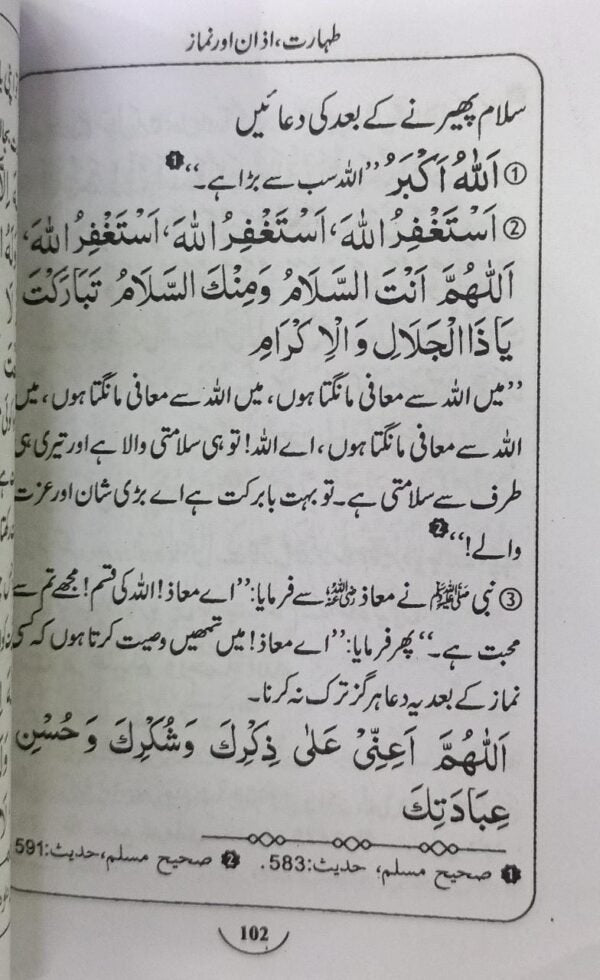 طہارت، اذان اور نماز
سلام پھیرنے کے بعد کی دعائیں
① اَللّٰهُ اَكْبَرُ ’’اللہ سب سے بڑا ہے۔‘‘ ❶
② اَسْتَغْفِرُ اللهَ، اَسْتَغْفِرُ اللهَ، اَسْتَغْفِرُ اللهَ،
اَللّٰهُمَّ اَنْتَ السَّلَامُ وَمِنْكَ السَّلَامُ تَبَارَكْتَ
يَا ذَا الْجَلَالِ وَالْاِكْرَامِ
’’میں اللہ سے معافی مانگتا ہوں، میں اللہ سے معافی مانگتا ہوں، میں
اللہ سے معافی مانگتا ہوں، اے اللہ! تو ہی سلامتی والا ہے اور تیری ہی
طرف سے سلامتی ہے۔ تو بہت بابرکت ہے اے بڑی شان اور عزت
والے!‘‘ ❷
③ نبی ﷺ نے معاذ رضی اللہ عنہ سے فرمایا: ’’اے معاذ! اللہ کی قسم! مجھے تم سے
محبت ہے۔‘‘ پھر فرمایا: ’’اے معاذ! میں تمھیں وصیت کرتا ہوں کہ کسی
نماز کے بعد یہ دعا ہرگز ترک نہ کرنا۔
اَللّٰهُمَّ اَعِنِّيْ عَلٰى ذِكْرِكَ وَشُكْرِكَ وَحُسْنِ
عِبَادَتِكَ
❶ صحیح مسلم، حدیث:583. ❷ صحیح مسلم، حدیث:591
102